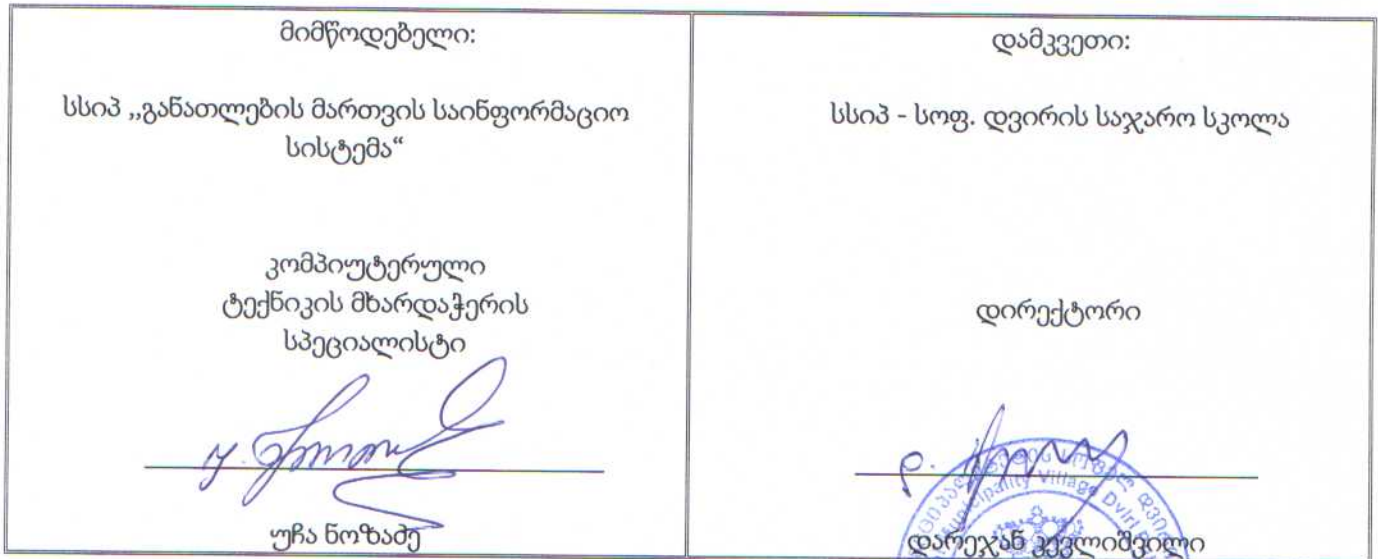 მიმწოდებელი:
სსიპ ,,განათლების მართვის საინფორმაციო
სისტემა“
კომპიუტერული
ტექნიკის მხარდაჭერის
სპეციალისტი
უჩა ნოზაძე
დამკვეთი:
სსიპ - სოფ. დვირის საჯარო სკოლა
დირექტორი
დ.
Municipality Village Dviri
დარეჯან კევლიშვილი